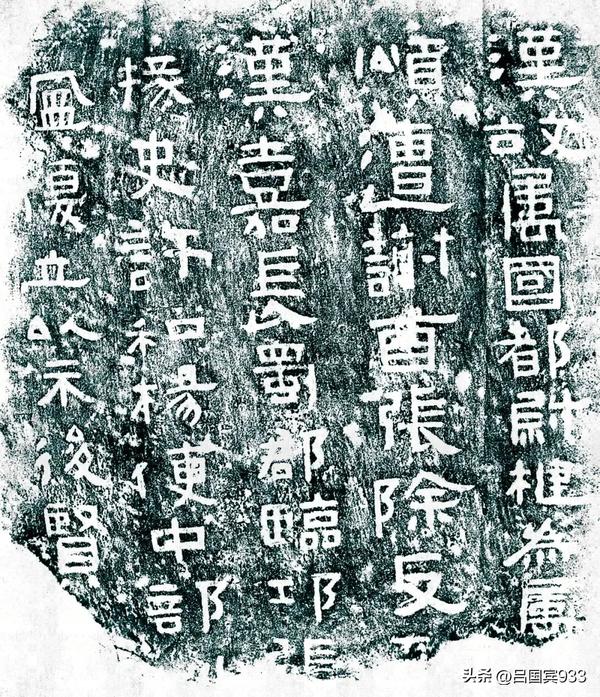 漢故属國都尉楗為属
順遭謝酋張除反
漢嘉長蜀郡臨邛張
掾史許和楊便中部
盛復立以示後賢
头条 @吕国宾933